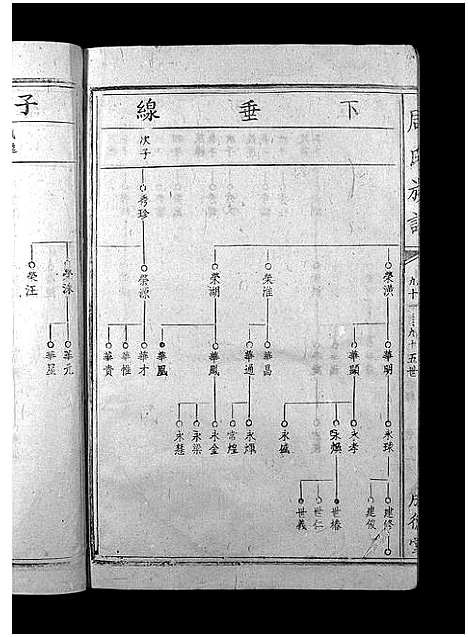 周氏族譜
九十
至九十五世
下垂線
榮漢
華明
永球
建修
建俊
華顯
永孝
永煜
世椿
世仁
世義
永盛
榮淮
華昌
榮湖
華通
永煇
常煌
華鳳
永金
永梁
永慧
華凰
次子
秀珍
榮源
華才
華惟
華貴
子
榮泳
華元
榮汪
華星